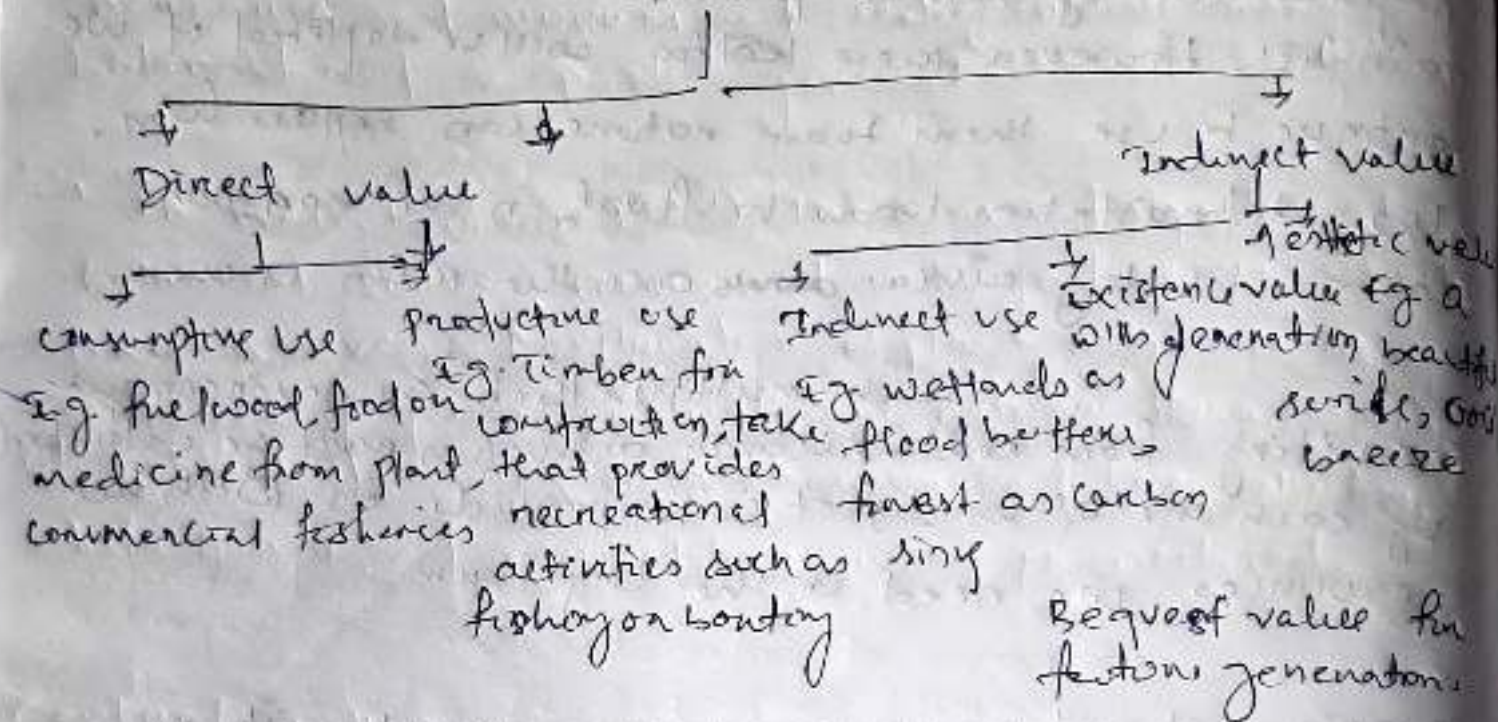 Direct value
Indirect value
consumptive use
E.g. fuelwood, food or
medicine from plant,
commercial fisheries
Productive use
E.g. Timber for
construction, take
that provides
recreational
activities such as
fishing or boating
Indirect use
E.g. wetlands as
flood buffers,
forest as carbon
sink
Existence value
generation
Aesthetic val
E.g. a
beautif
breeze
Bequest value for
generation.